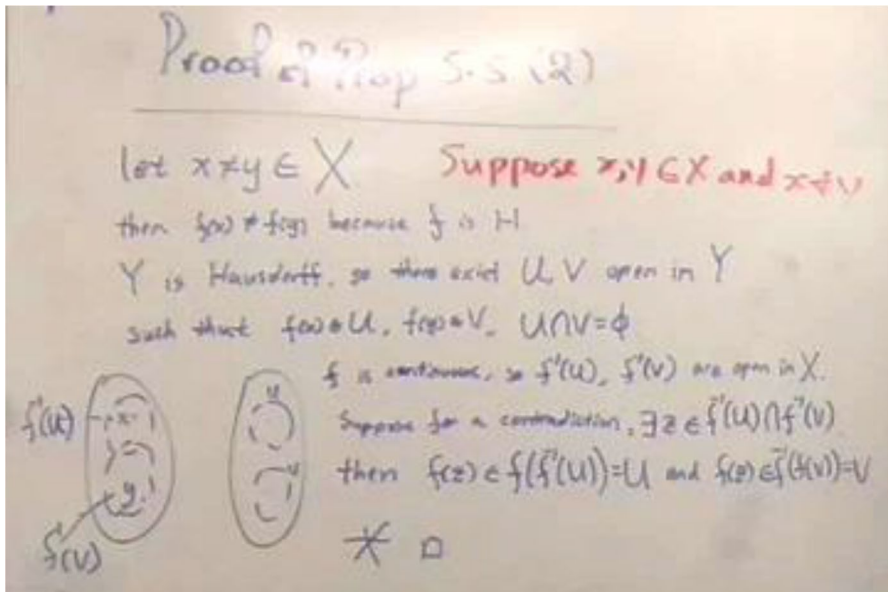 Proof of Prop 5.5 (2)
let x≠y ∈ X
Suppose x,y ∈ X and x≠y
then f(x) ≠ f(y) because f is H
Y is Hausdorff, so there exist U, V open in Y
such that f(x)∈U, f(y)∈V, U∩V=ϕ
f is continuous, so f⁻¹(U), f⁻¹(V) are open in X.
Suppose for a contradiction, ∃z ∈ f⁻¹(U)∩f⁻¹(V)
then f(z) ∈ f(f⁻¹(U))=U and f(z)∈f⁻¹(f(V))=V
f⁻¹(U)
x
y
f⁻¹(V)
U
V